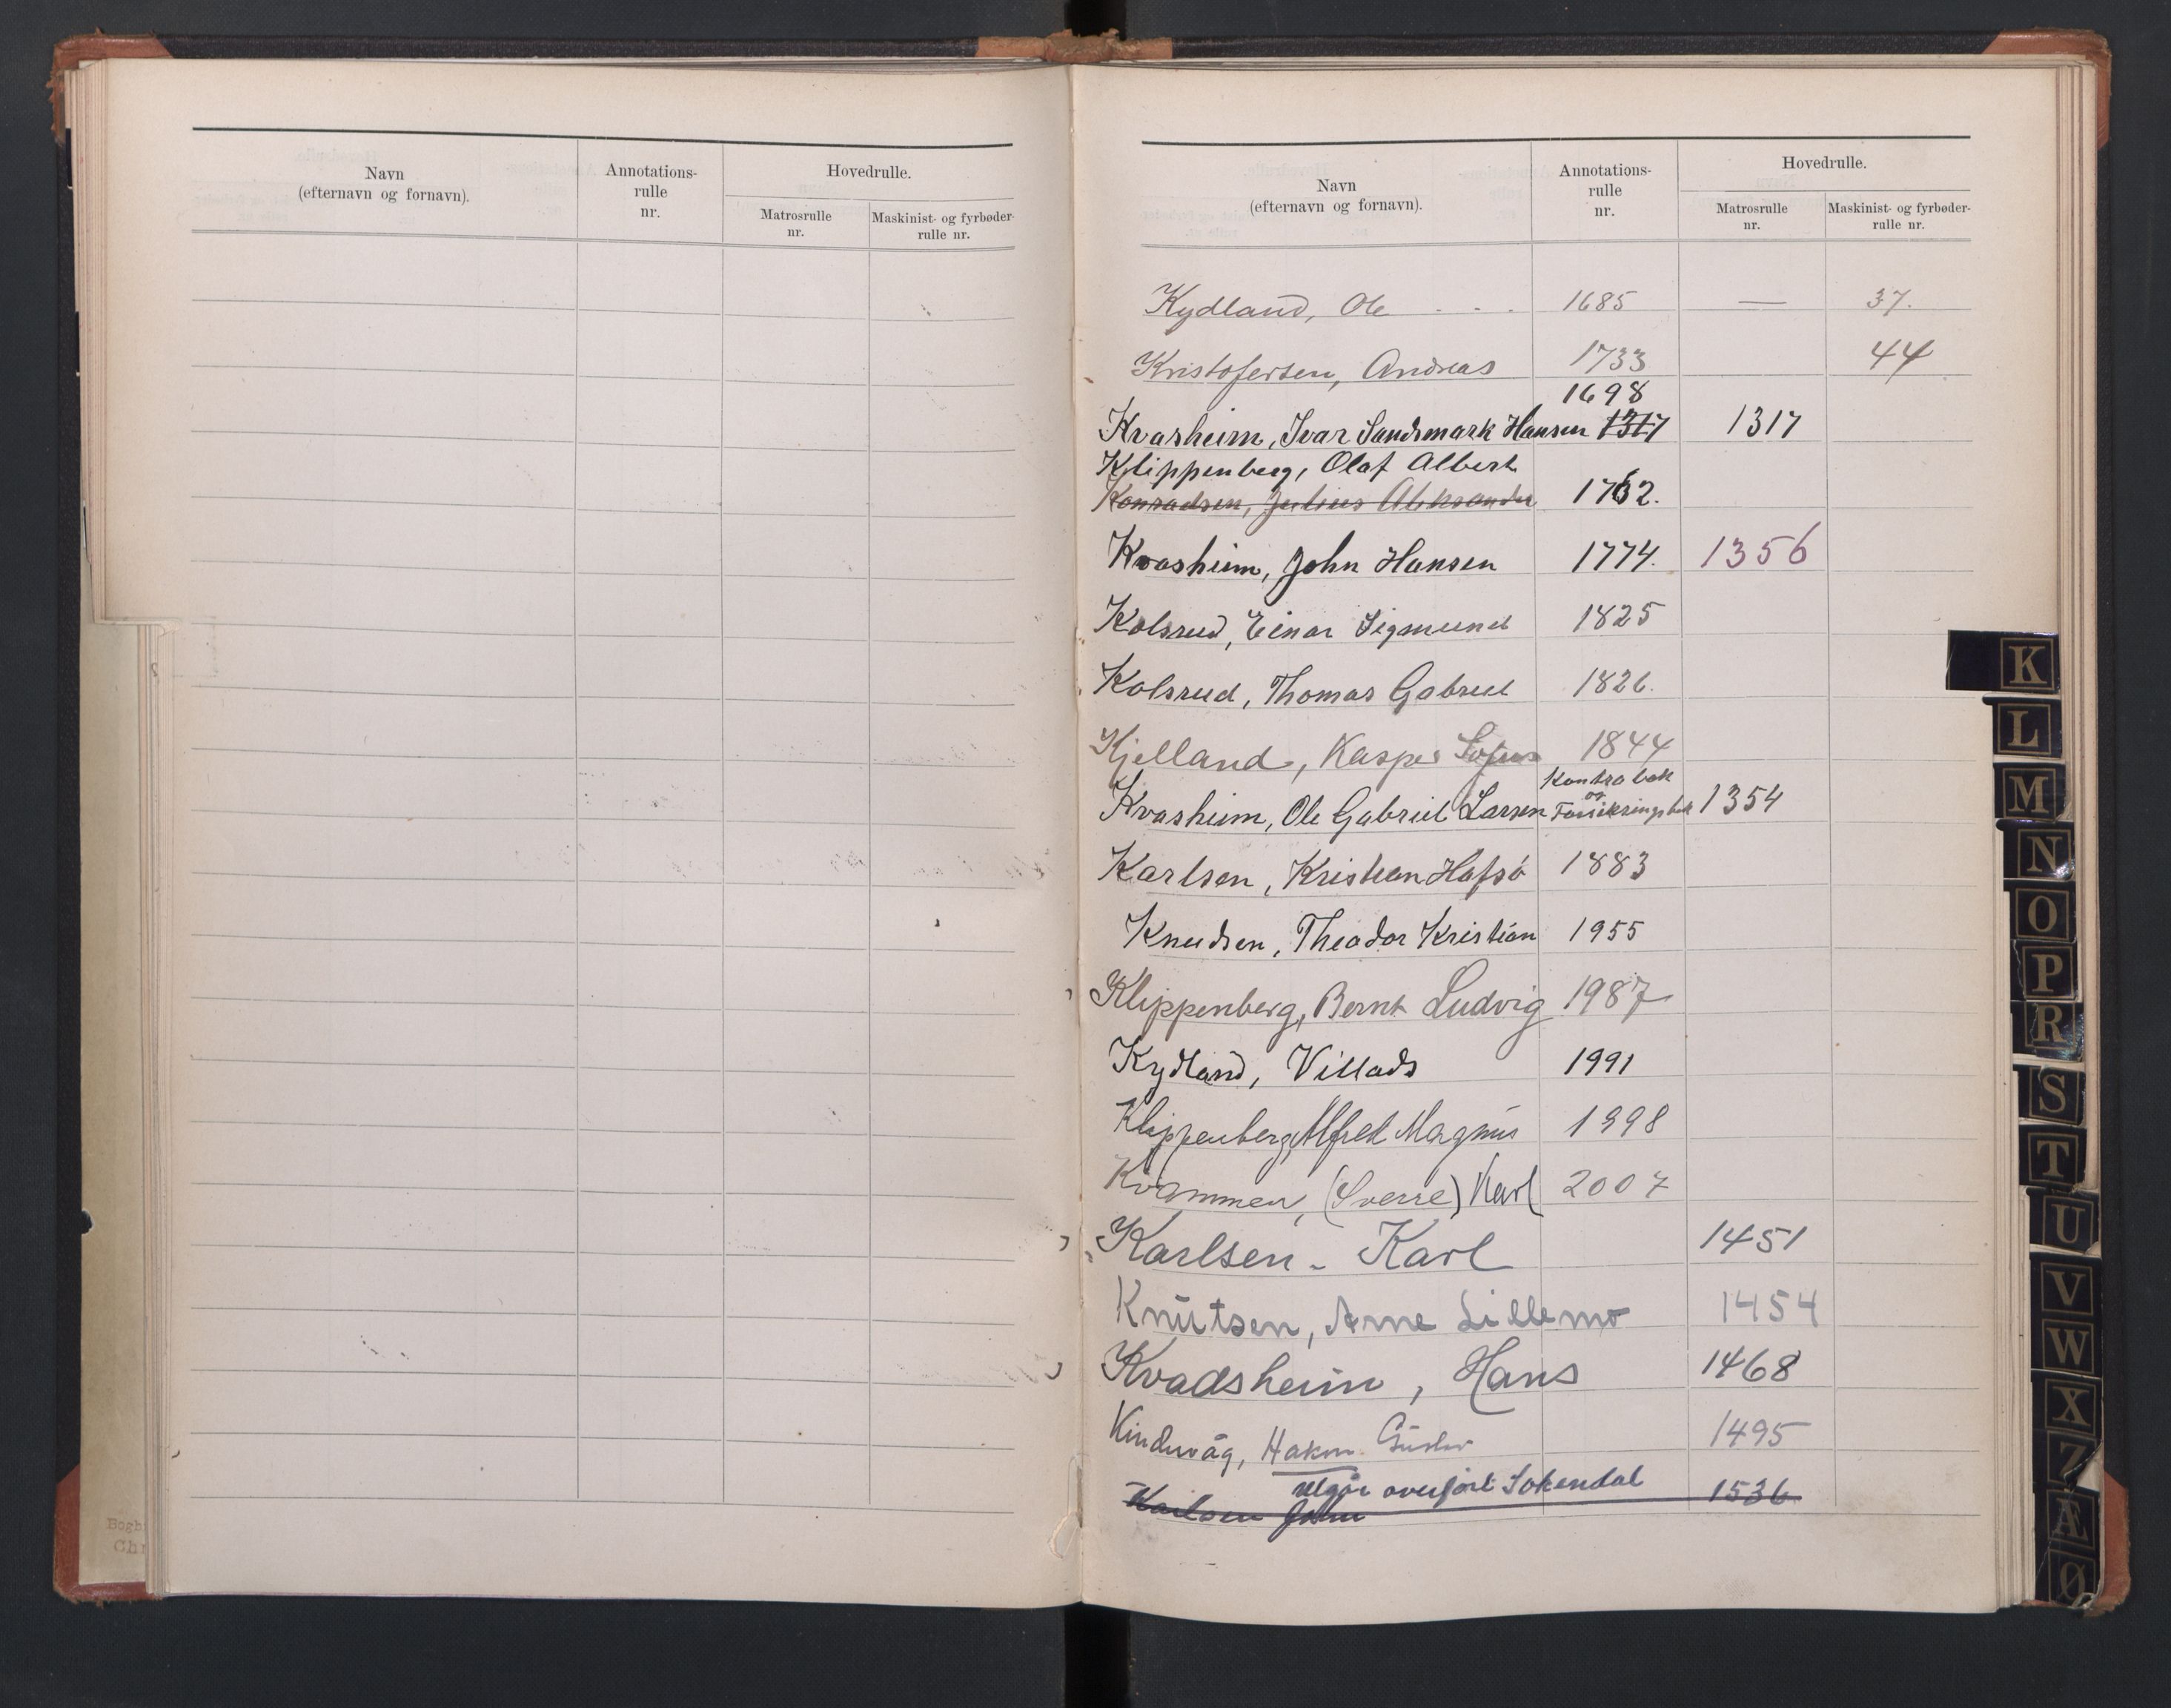 Navn
(efternavn og fornavn).
Annotations-
rulle
nr.
Hovedrulle.
Matrosrulle
nr.
Maskinist- og fyrbøder-
rulle nr.
Navn
(efternavn og fornavn).
Annotations-
rulle
nr.
Hovedrulle.
Matrosrulle
nr.
Maskinist- og fyrbøder-
rulle nr.
Kydland, Ole . . . 1685 — 37.
Kristofersen, Andreas 1733 44
1698
Kvasheim, Ivar Sandsmark Hansen 1317 1317
Klippenberg, Olaf Albert
Konradsen, Julius Aleksander 1762.
Kvasheim, John Hansen 1774. 1356
Kolsrud, Einar Sigmund 1825
Kolsrud, Thomas Gabriel 1826.
Kjelland, Kasper Sofus 1844
Kontrabok
og
Kvasheim, Ole Gabriel Larsen Forsikringsbok 1354
Karlsen, Kristian Hafsö 1883
Knudsen, Theodor Kristian 1955
Klippenberg, Bernt Ludvig 1987
Kydland, Villads 1991
Klippenberg, Alfred Magnus 1998
Kvammen, (Sverre) Karl 2007
Karlsen - Karl 1451
Knutsen, Arne Lillemo 1454
Kvadsheim, Hans 1468
Kindervåg, Hakon Gustav 1495
utgår overført Sokendal
Karlsen John 1536
K
L
M
N
O
P
R
S
T
U
V
W
X
Z
Æ
Ø
Bogb
Chr